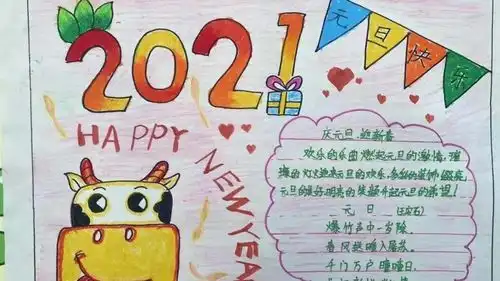 2021
元旦快乐
HAPPY
NEW YEA
庆元旦 迎新春
欢乐的乐曲燃起元旦的激情,璀
璨的灯火迎来元旦的欢乐,的装饰
元旦的美好,明亮的升起元旦的希望!
元旦 (王安石)
爆竹声中一岁除,
春风送暖入屠苏。
千门万户曈曈日,